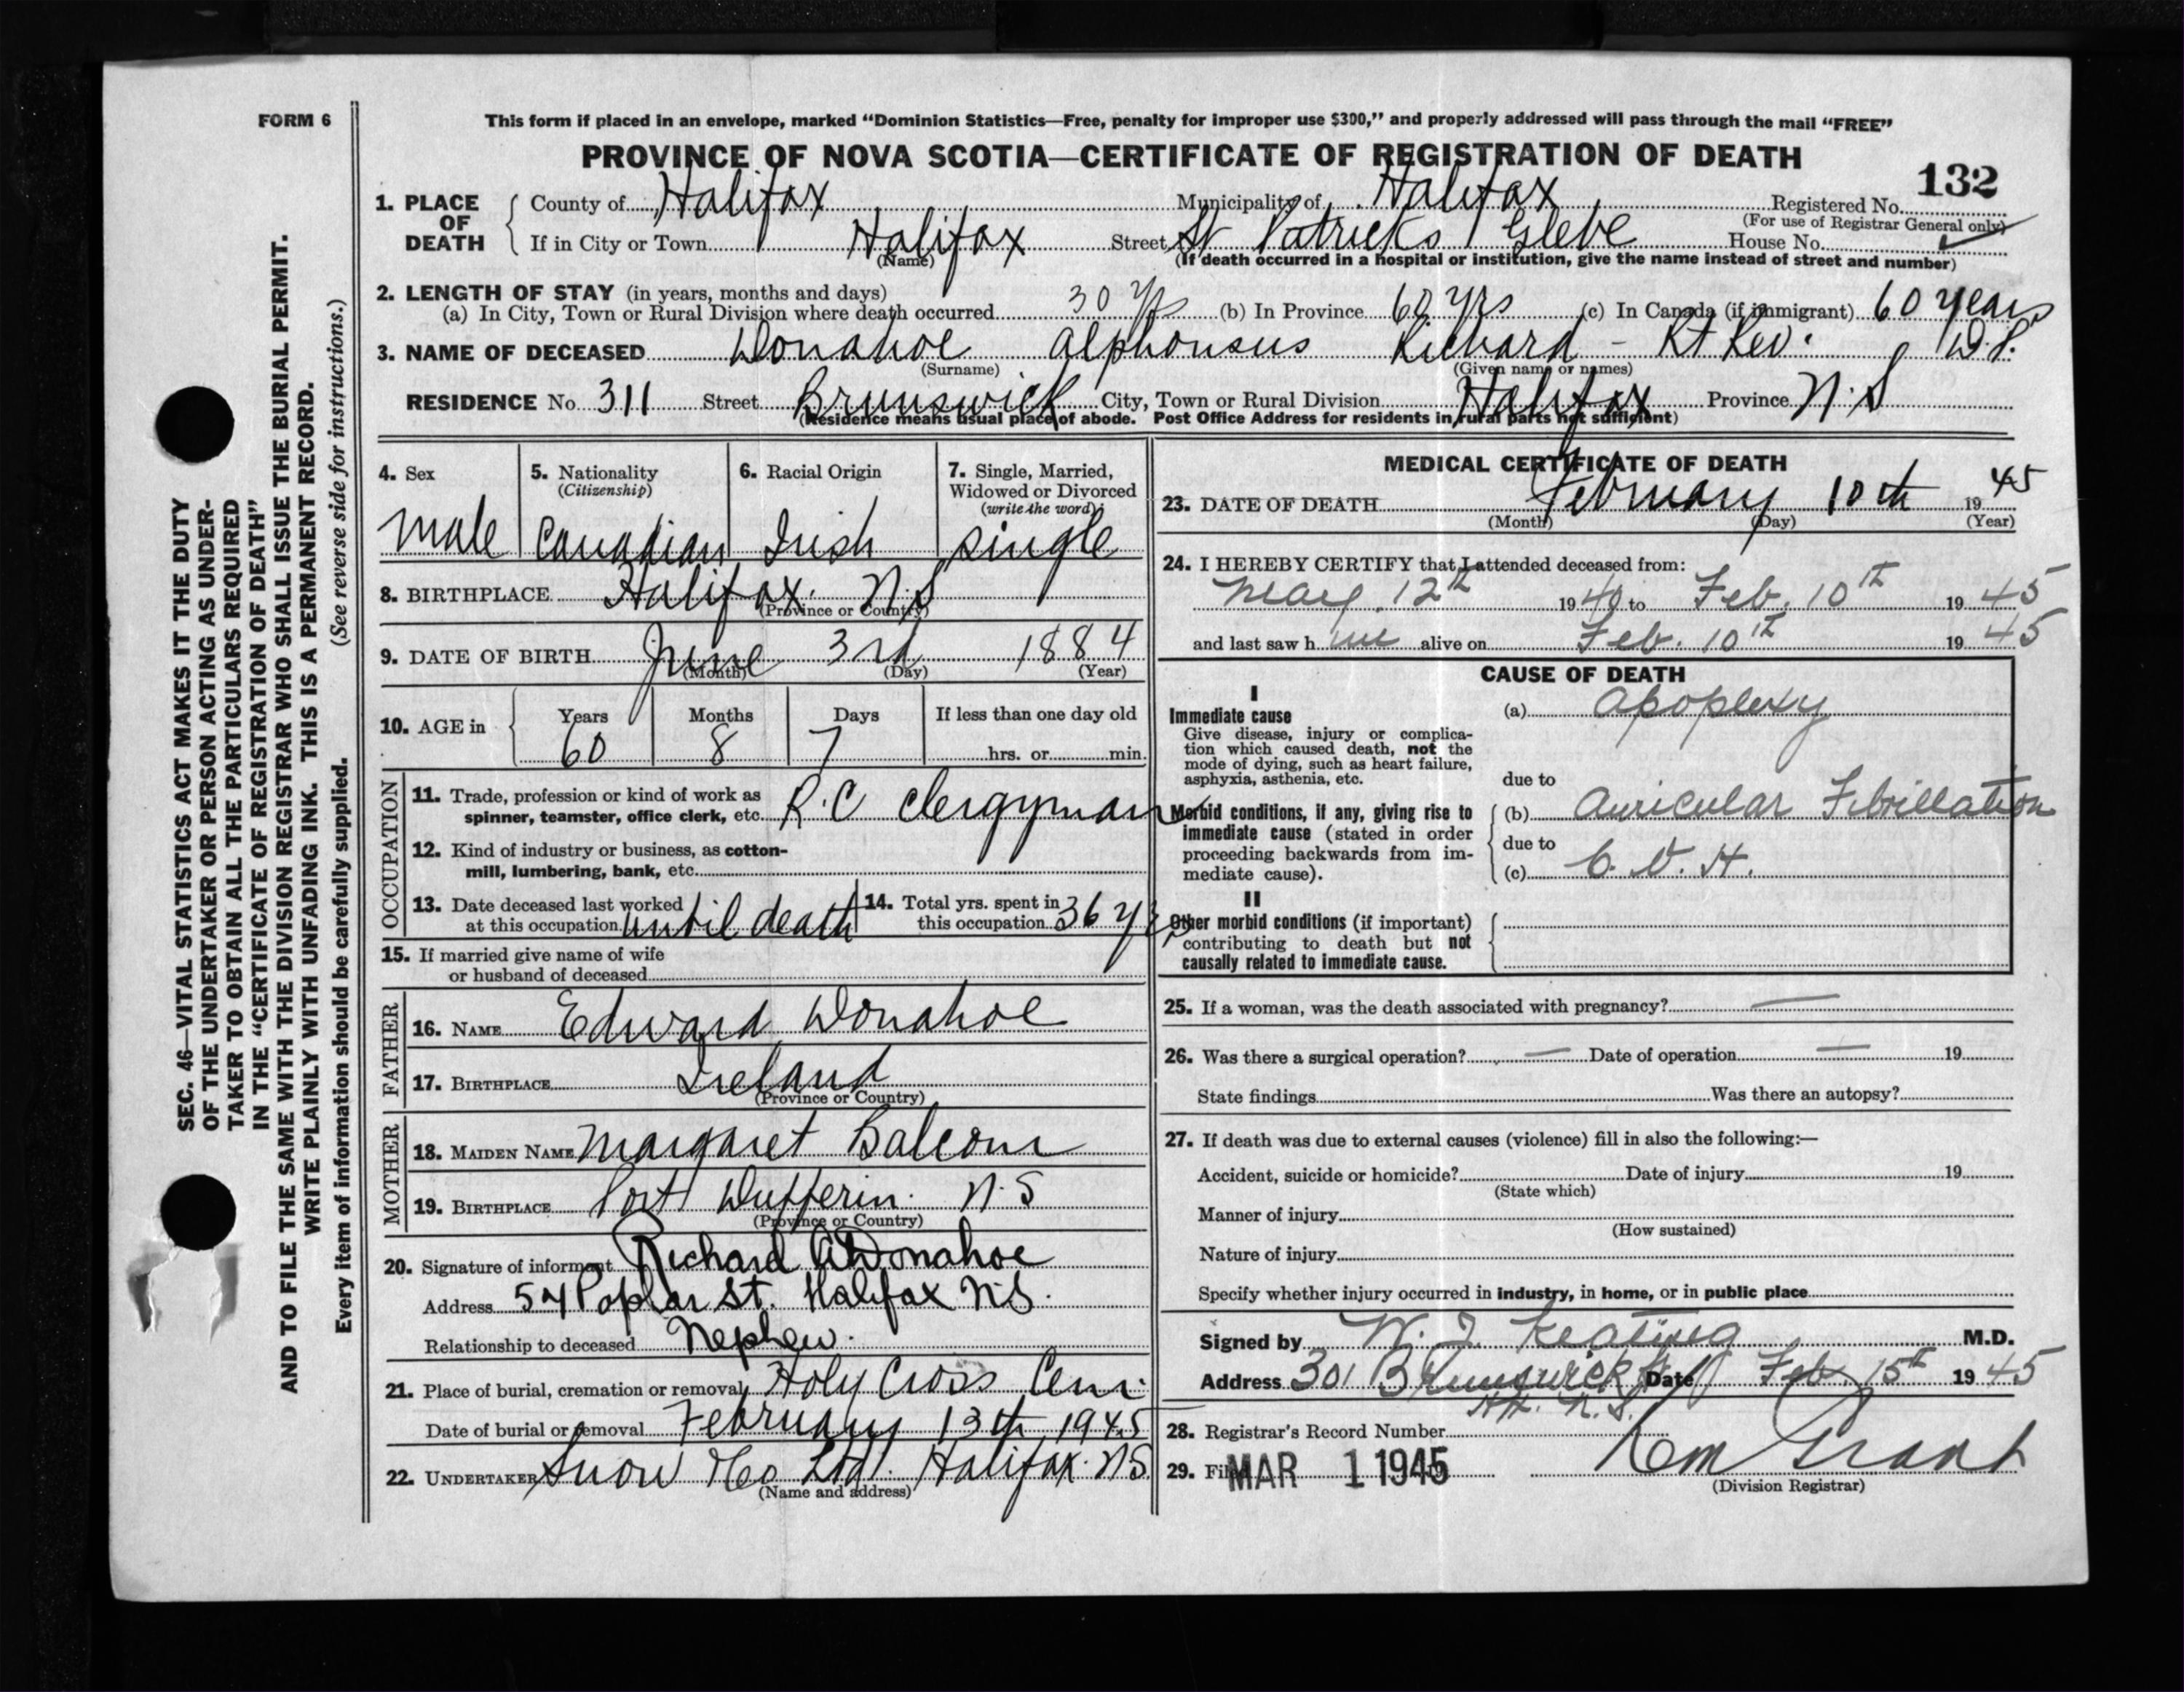 FORM 6
This form if placed in an envelope, marked "Dominion Statistics—Free, penalty for improper use $300," and properly addressed will pass through the mail "FREE"
PROVINCE OF NOVA SCOTIA—CERTIFICATE OF REGISTRATION OF DEATH
132
1. PLACE OF DEATH
County of Halifax Municipality of Halifax Registered No.
(For use of Registrar General only)
If in City or Town Halifax Street St Patricks Glebe House No.
(Name) (If death occurred in a hospital or institution, give the name instead of street and number)
2. LENGTH OF STAY (in years, months and days)
(a) In City, Town or Rural Division where death occurred 30 yrs (b) In Province 60 yrs (c) In Canada (if immigrant) 60 years
3. NAME OF DECEASED Donahoe Alphonsus Richard - Rt Rev. D.P.
(Surname) (Given name or names)
RESIDENCE No. 311 Street Brunswick City, Town or Rural Division Halifax Province N.S
(Residence means usual place of abode. Post Office Address for residents in rural parts not sufficient)
4. Sex
male
5. Nationality
(Citizenship)
Canadian
6. Racial Origin
Irish
7. Single, Married,
Widowed or Divorced
(write the word)
single
8. BIRTHPLACE Halifax. N.S
(Province or Country)
9. DATE OF BIRTH June 3rd 1884
(Month) (Day) (Year)
10. AGE in Years Months Days If less than one day old
60 8 7 hrs. or min.
OCCUPATION
11. Trade, profession or kind of work as
spinner, teamster, office clerk, etc. R.C Clergyman
12. Kind of industry or business, as cotton-
mill, lumbering, bank, etc.
13. Date deceased last worked
at this occupation until death
14. Total yrs. spent in
this occupation 36 yrs
15. If married give name of wife
or husband of deceased
FATHER
16. NAME Edward Donahoe
17. BIRTHPLACE Ireland
(Province or Country)
MOTHER
18. MAIDEN NAME Margaret Balcom
19. BIRTHPLACE Port Dufferin. N.S
(Province or Country)
20. Signature of informant Richard A Donahoe
Address 54 Poplar St. Halifax N.S.
Relationship to deceased Nephew.
21. Place of burial, cremation or removal Holy Cross Cem.
Date of burial or removal February 13th 1945
22. UNDERTAKER Snow & Co Ltd. Halifax. N.S.
(Name and address)
MEDICAL CERTIFICATE OF DEATH
23. DATE OF DEATH February 10th 1945
(Month) (Day) (Year)
24. I HEREBY CERTIFY that I attended deceased from:
May 12th 1940 to Feb. 10th 1945
and last saw him alive on Feb. 10th 1945
CAUSE OF DEATH
I
Immediate cause
Give disease, injury or complica-
tion which caused death, not the
mode of dying, such as heart failure,
asphyxia, asthenia, etc.
(a) Apoplexy
due to
Morbid conditions, if any, giving rise to
immediate cause (stated in order
proceeding backwards from im-
mediate cause).
(b) Auricular Fibrillation
due to
(c) C. V. H.
II
Other morbid conditions (if important)
contributing to death but not
causally related to immediate cause.
25. If a woman, was the death associated with pregnancy? —
26. Was there a surgical operation? — Date of operation — 19
State findings Was there an autopsy?
27. If death was due to external causes (violence) fill in also the following:—
Accident, suicide or homicide? Date of injury 19
(State which)
Manner of injury
(How sustained)
Nature of injury
Specify whether injury occurred in industry, in home, or in public place
Signed by W. J. Keating M.D.
Address 301 Brunswick St Date Feb. 15th 1945
Hfx. N.S.
28. Registrar's Record Number
29. Filed MAR 1 1945
Grant
(Division Registrar)
SEC. 46—VITAL STATISTICS ACT MAKES IT THE DUTY
OF THE UNDERTAKER OR PERSON ACTING AS UNDER-
TAKER TO OBTAIN ALL THE PARTICULARS REQUIRED
IN THE "CERTIFICATE OF REGISTRATION OF DEATH"
AND TO FILE THE SAME WITH THE DIVISION REGISTRAR WHO SHALL ISSUE THE BURIAL PERMIT.
WRITE PLAINLY WITH UNFADING INK. THIS IS A PERMANENT RECORD.
Every item of information should be carefully supplied. (See reverse side for instructions.)